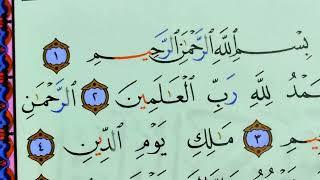 بِسْمِ ٱللَّهِ ٱلرَّحْمَٰنِ ٱلرَّحِيمِ ١
مْدُ لِلَّهِ رَبِّ ٱلْعَٰلَمِينَ ٢ ٱلرَّحْمَٰنِ
يمِ ٣ مَٰلِكِ يَوْمِ ٱلدِّينِ ٤